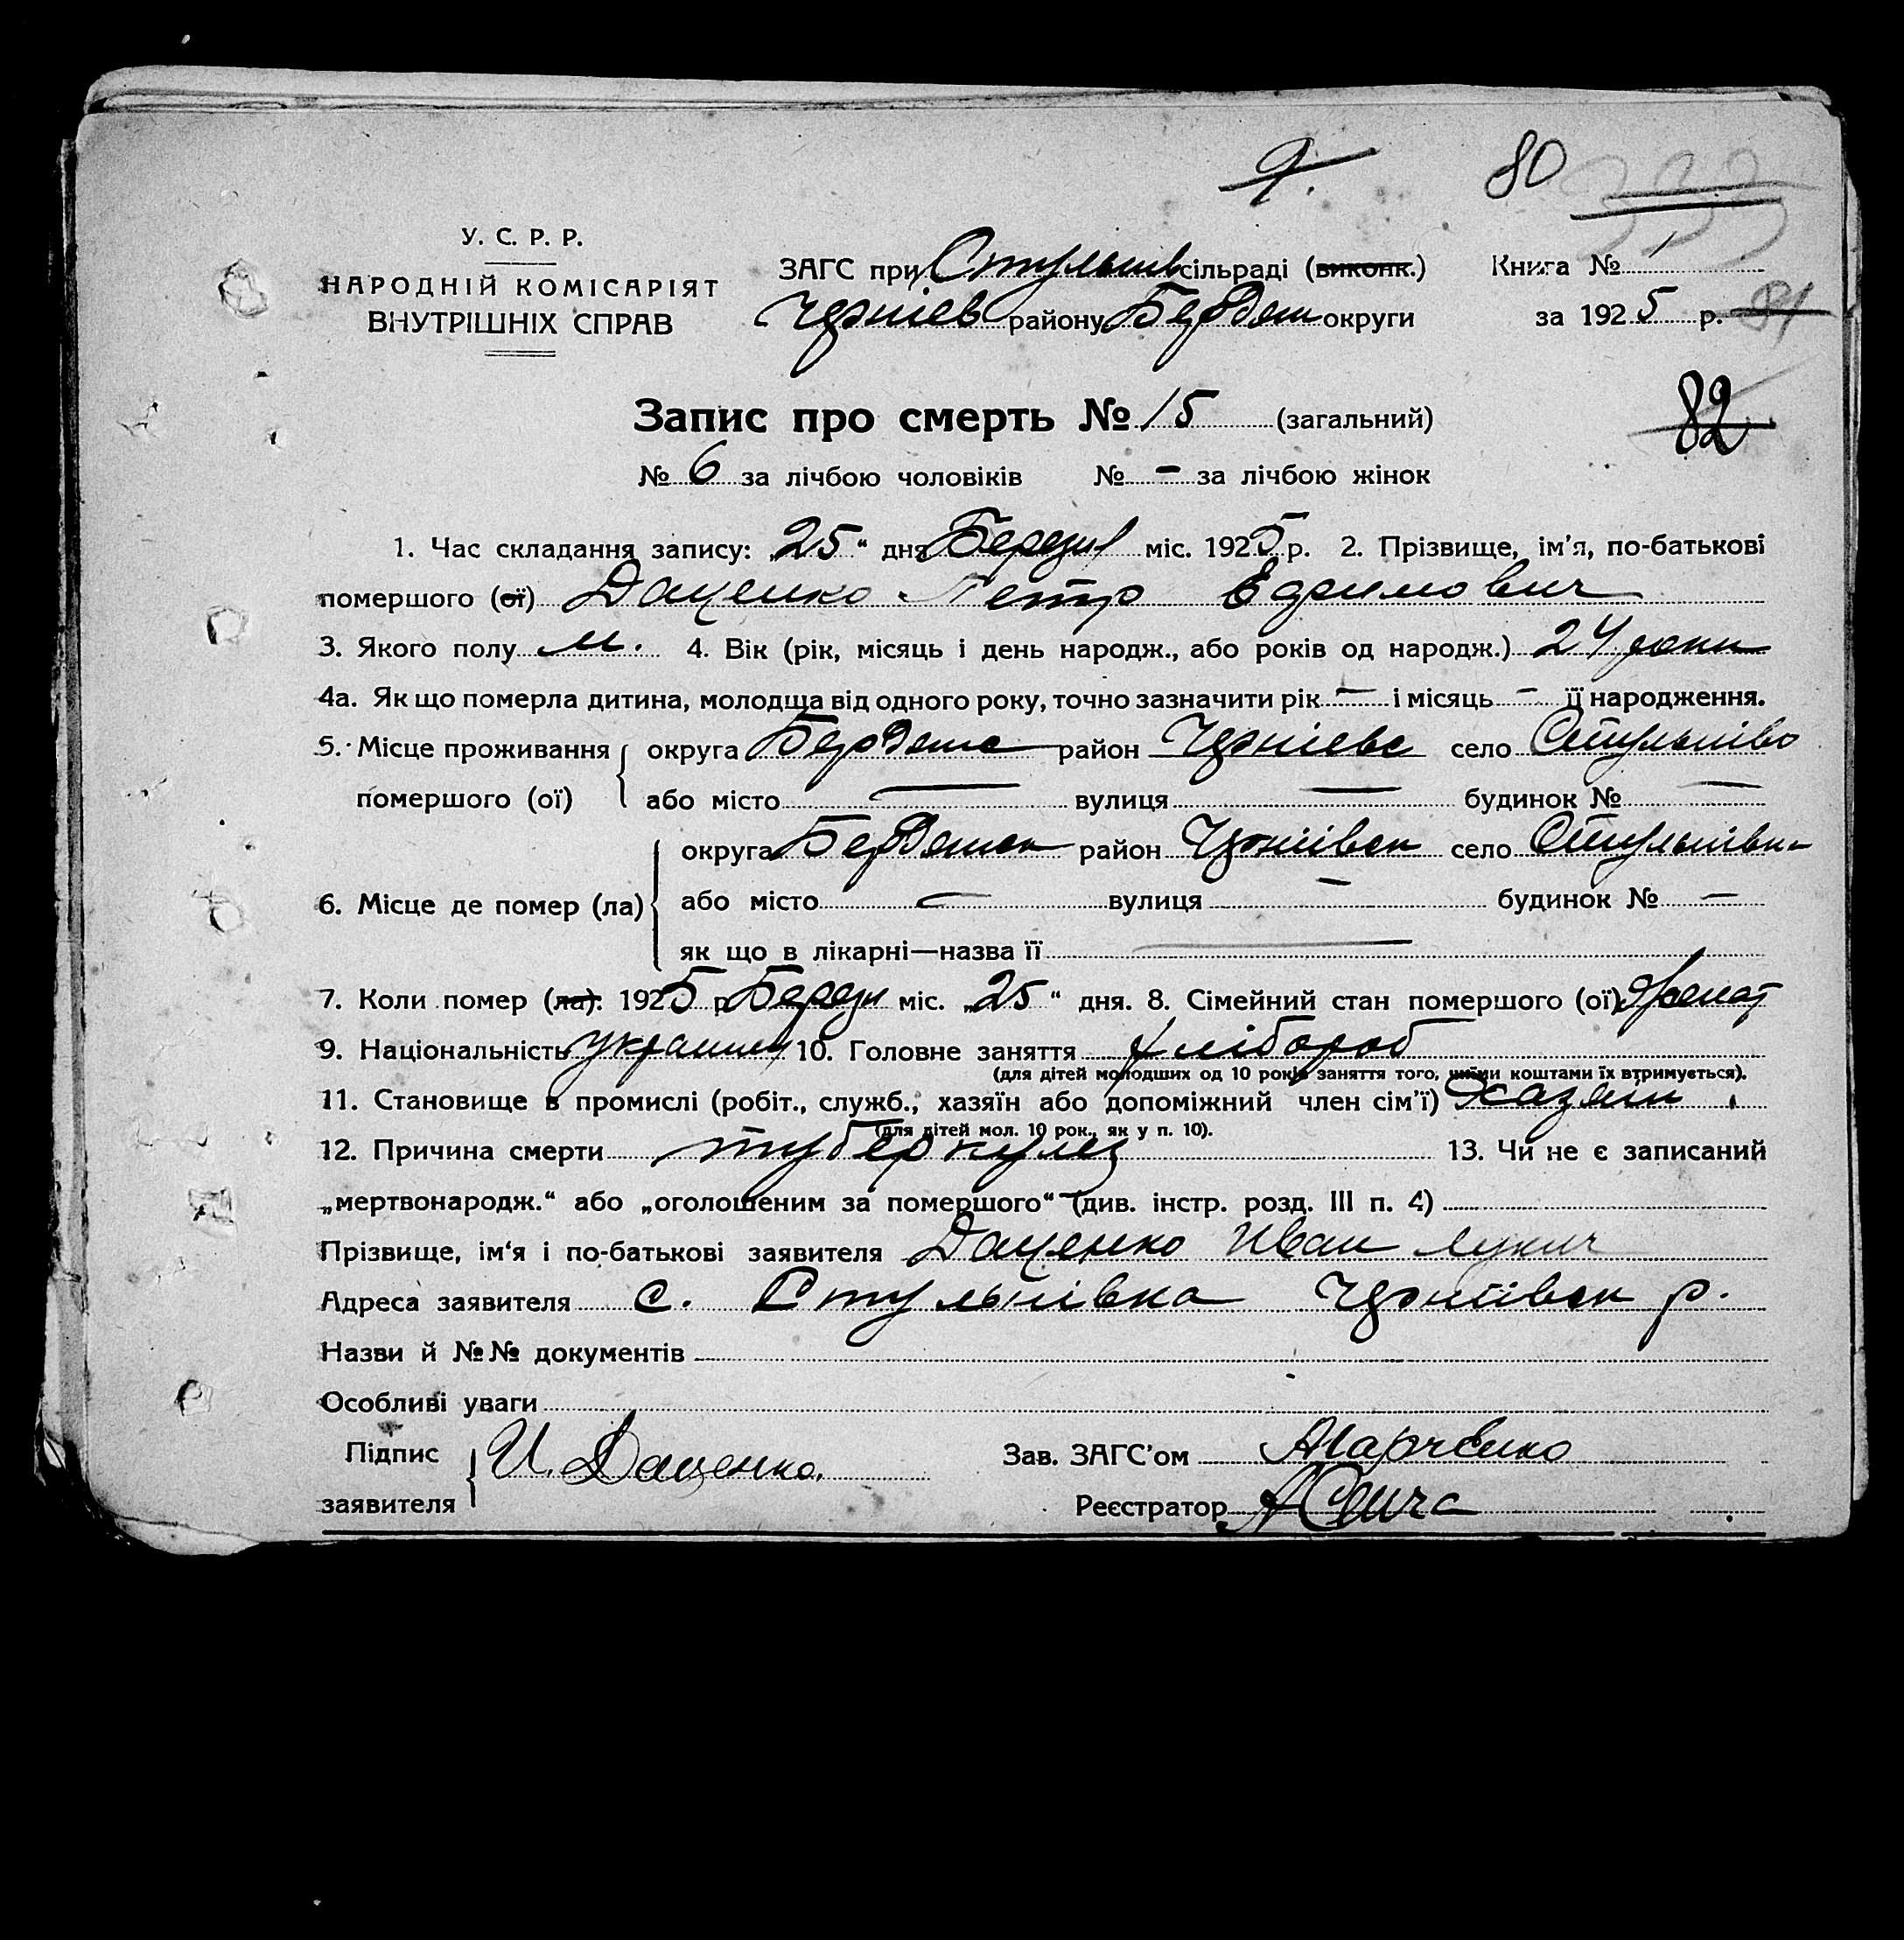 9.
80
У. С. Р. Р.
НАРОДНІЙ КОМІСАРІЯТ
ВНУТРІШНІХ СПРАВ
ЗАГС при Стульнів сільраді (виконк.)
Черніев району Бердян округи
Книга № 1
за 1925 р. 81
82
Запис про смерть № 15 (загальний)
№ 6 за лічбою чоловіків № - за лічбою жінок
1. Час складання запису: „25“ дня Березня міс. 1925 р. 2. Прізвище, ім'я, по-батькові
помершого (ої) Даценко Петр Ефимович
3. Якого полу м. 4. Вік (рік, місяць і день народж., або років од народж.) 24 роки
4а. Як що померла дитина, молодща від одного року, точно зазначити рік — і місяць — її народження.
5. Місце проживання помершого (ої) округа Бердянс район Черніевс село Стульніво
або місто — вулиця — будинок № —
6. Місце де помер (ла) округа Бердянск район Чрнiівск село Стульнівка
або місто — вулиця — будинок № —
як що в лікарні—назва її —
7. Коли помер (ла): 1925 р. Березн міс. „25“ дня. 8. Сімейний стан помершого (ої) Женат
9. Національність украинец 10. Головне заняття хлібороб
(для дітей молодших од 10 років заняття того, чиїми коштами їх втримується).
11. Становище в промислі (робіт., служб., хазяїн або допоміжний член сім'ї) хазяїн
(для дітей мол. 10 рок., як у п. 10).
12. Причина смерти туберкулез 13. Чи не є записаний
„мертвонародж.“ або „оголошеним за помершого“ (див. інстр. розд. III п. 4)
Прізвище, ім'я і по-батькові заявителя Даценко Иван Лукич
Адреса заявителя с. Стульнівка Чрнiівск р.
Назви й №№ документів
Особливі уваги
Підпис заявителя И. Даценко.
Зав. ЗАГС'ом Марченко
Реєстратор